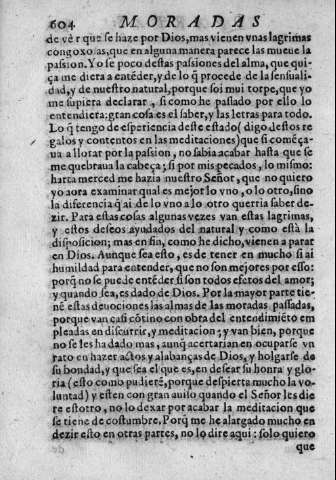 604 MORADAS
de vèr que se haze por Dios, mas vienen vnas lagrimas
congoxosas, que en alguna manera parece las mueue la
passion. Yo se poco destas passiones del alma, que qui-
ça me diera a entẽder, y de lo q̃ procede de la sensuali-
dad, y de nuestro natural, porque soi mui torpe, que yo
me supiera declarar, si como he passado por ello lo
entendiera: gran cosa es el saber, y las letras para todo.
Lo q̃ tengo de esperiencia deste estado (digo destos re
galos y contentos en las meditaciones) que si comẽça-
ua a llorar por la passion, no sabia acabar hasta que se
me quebraua la cabeça; si por mis pecados, lo mismo:
harta merced me hazia nuestro Señor, que no quiero
yo aora examinar qual es mejor lo vno, o lo otro, sino
la diferencia q̃ ai de lo vno a lo otro querria saber de-
zir. Para estas cosas algunas vezes van estas lagrimas,
y estos deseos ayudados del natural y como està la
disposicion; mas en fin, como he dicho, vienen a parar
en Dios. Aunque sea esto, es de tener en mucho si ai
humildad para entender, que no son mejores por esso:
porq̃ no se puede entẽder si son todos efetos del amor;
y quando sea, es dado de Dios. Por la mayor parte tie-
nẽ estas deuociones las almas de las moradas passadas,
porque van casi cõtino con obra del entendimiẽto em
pleadas en discurrir, y meditacion; y van bien, porque
no se les ha dado mas, aunq̃ acertarian en ocuparse vn
rato en hazer actos y alabanças de Dios, y holgarse de
su bondad, y que sea el que es, en desear su honra y glo-
ria (esto como pudierẽ, porque despierta mucho la vo-
luntad) y esten con gran auiso quando el Señor les die
re estotro, no lo dexar por acabar la meditacion que
se tiene de costumbre. Porq̃ me he alargado mucho en
dezir esto en otras partes, no lo dire aqui: solo quiero
que